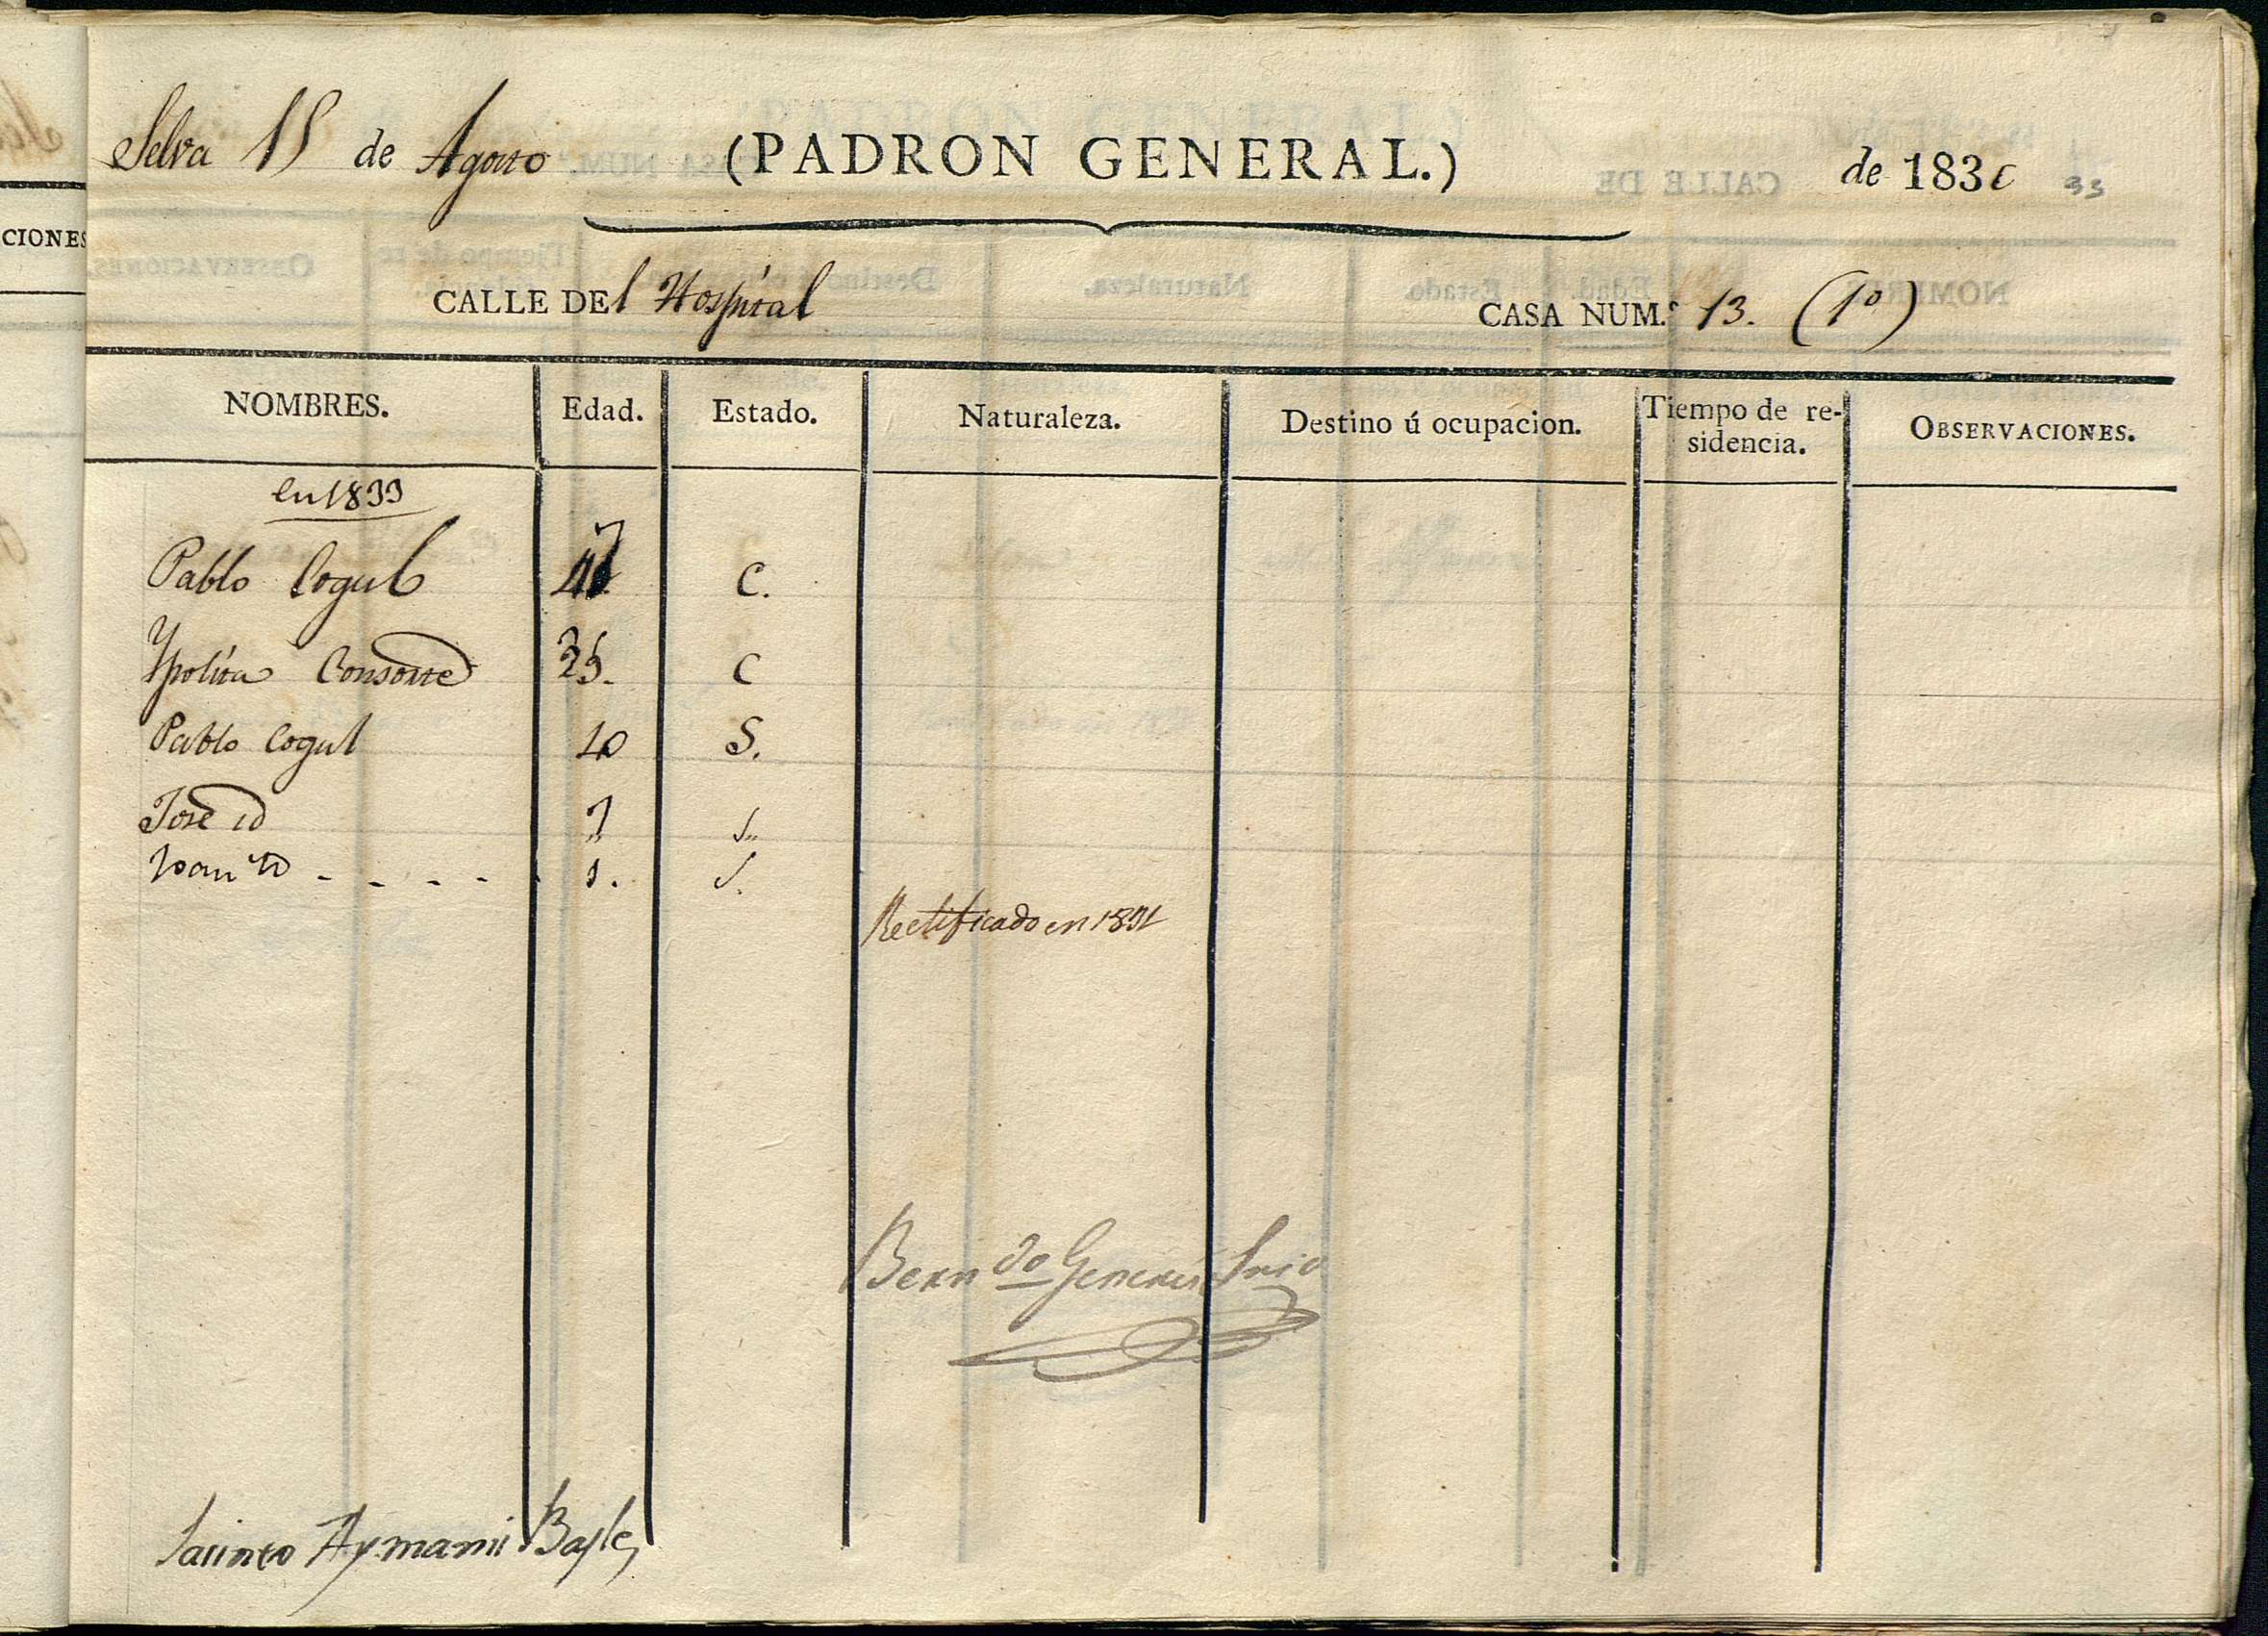 Selva 15 de Agosto (PADRON GENERAL.) de 1830 33
CALLE DEl Hospital CASA NUM.º 13. (1º)
NOMBRES. Edad. Estado. Naturaleza. Destino ú ocupacion. Tiempo de re-sidencia. OBSERVACIONES.
CIONES
en 1833
Pablo Cogul C.
Ypolita Consorte C
Pablo Cogul 10 S.
Jose id 7 S.
Joan id - - - - 1. S.
Rectificado en
Bern do Generés Srio
Jacinto Aymamii Bayle